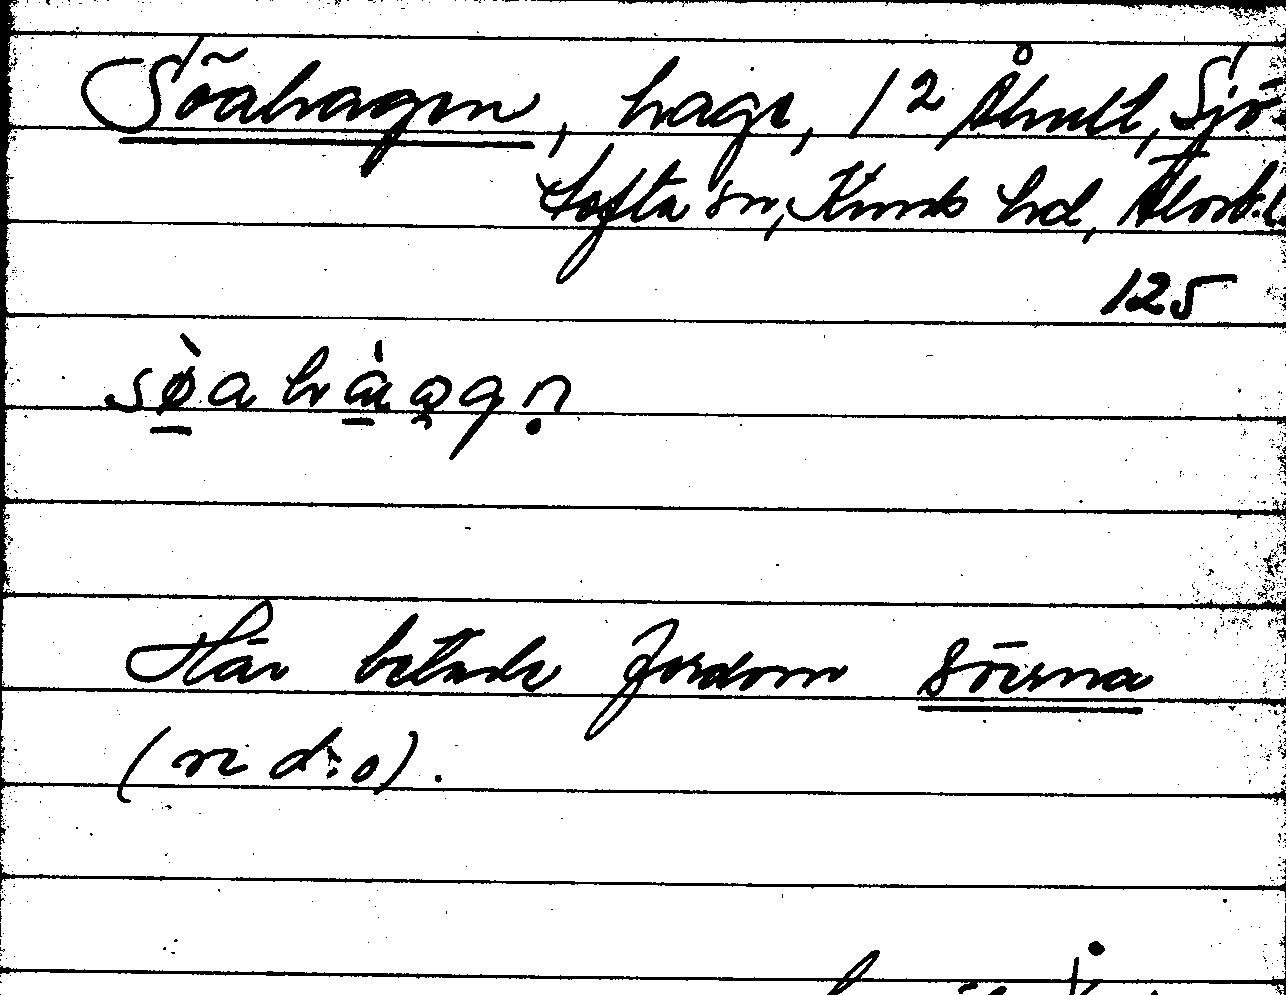 Söahagen, hage, 1² Åhult, Sjö-
tofta sn, Kinds hd, Älvsb.l.
125
söahaagn
Här betade fordom söerna
(se d:o).